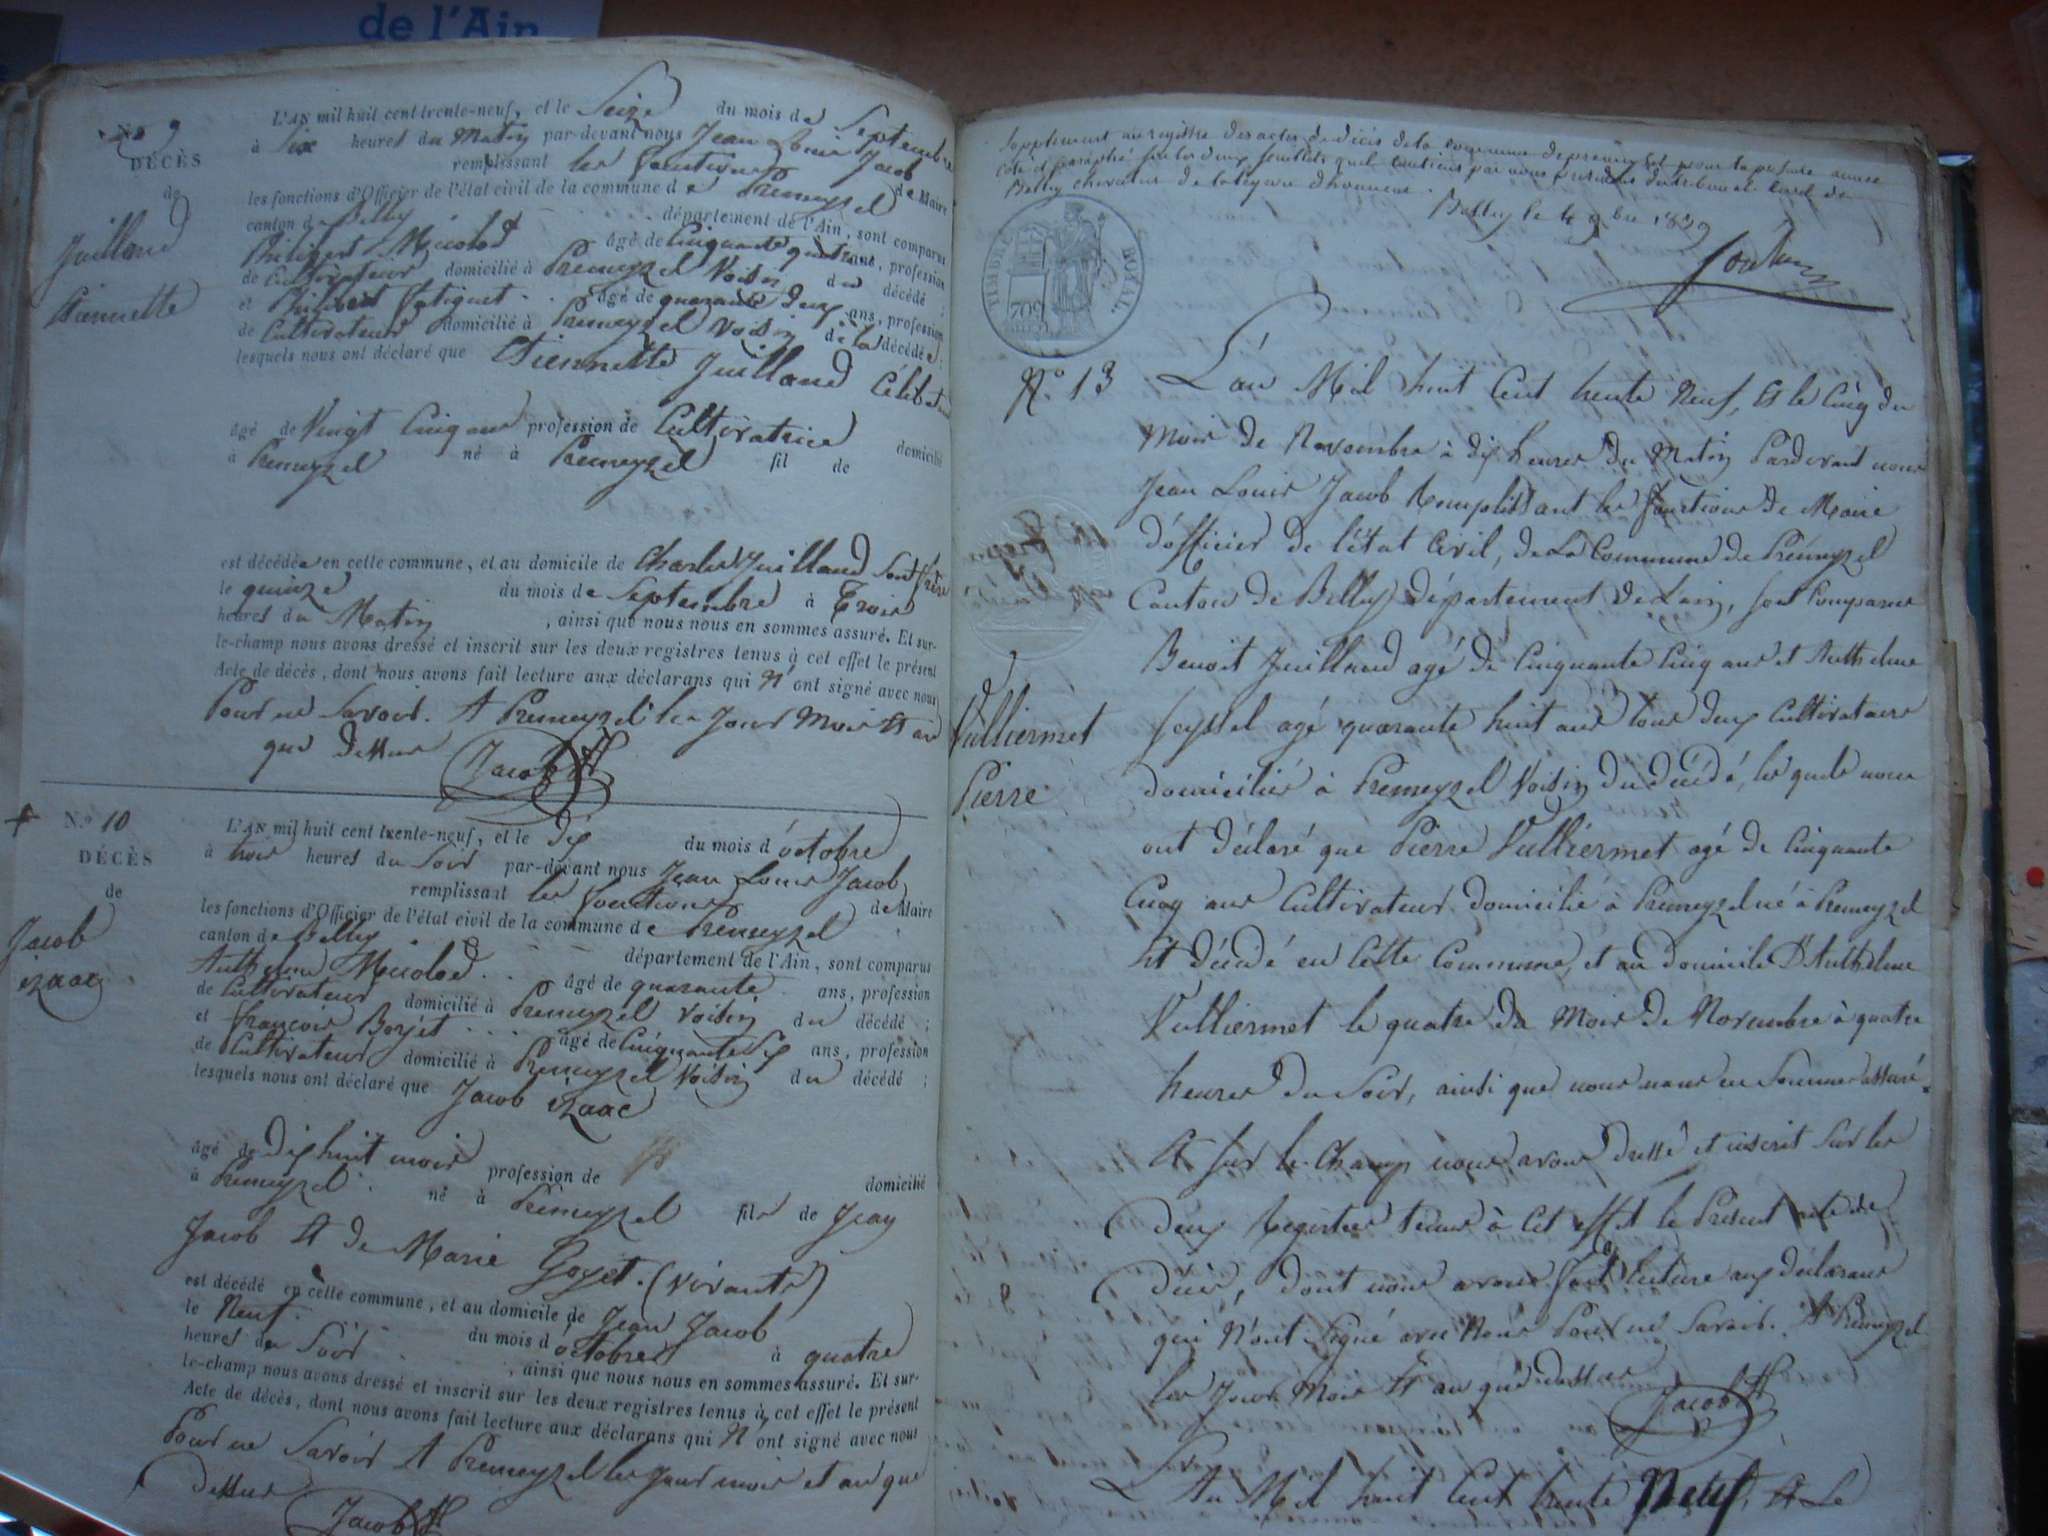 de l'Ain
N.o 9
DÉCÈS
de
Juilland
Etiennette
L'AN mil huit cent trente-neuf, et le Seize du mois de Septembre
à Six heures du Matin par-devant nous Jean Louis Jacob
remplissant les fonctions de Maire
les fonctions d'Officier de l'état civil de la commune de Premeyzel
canton de Belley département de l'Ain, sont comparus
Philibert Micolod âgé de Cinquante quatre ans, profession
de Cultivateur domicilié à Premeyzel Voisin du décédé ;
et Philibert âgé de quarante deux ans, profession
de Cultivateur domicilié à Premeyzel Voisin de la décédée ;
lesquels nous ont déclaré que Etiennette Juilland Célibataire
âgé de Vingt Cinq ans profession de Cultivatrice domicilié
à Premeyzel né à Premeyzel fil de
est décédée en cette commune, et au domicile de Charles Juilland Sont frère
le quinze du mois de Septembre à Trois
heures du Matin , ainsi que nous nous en sommes assuré. Et sur-
le-champ nous avons dressé et inscrit sur les deux registres tenus à cet effet le présent
Acte de décès, dont nous avons fait lecture aux déclarans qui N'ont signé avec nous
Pour ne Savoir. A Premeyzel les Jour Mois et an
que dessus Jacob
N.o 10
DÉCÈS
de
Jacob
izaac
L'AN mil huit cent trente-neuf, et le dix du mois d'octobre
à trois heures du Soir par-devant nous Jean Louis Jacob
remplissant les fonctions de Maire
les fonctions d'Officier de l'état civil de la commune de Premeyzel
canton de Belley département de l'Ain, sont comparus
Anthelme Micolod âgé de quarante ans, profession
de Cultivateur domicilié à Premeyzel Voisin du décédé ;
et françois Borjet âgé de Cinquante Six ans, profession
de Cultivateur domicilié à Premeyzel Voisin du décédé ;
lesquels nous ont déclaré que Jacob izaac
âgé de dix huit mois profession de domicilié
à Premeyzel né à Premeyzel fils de Jean
Jacob et de Marie Goyet. (vivants)
est décédé en cette commune, et au domicile de Jean Jacob
le Neuf du mois d'octobre à quatre
heures du Soir , ainsi que nous nous en sommes assuré. Et sur-
le-champ nous avons dressé et inscrit sur les deux registres tenus à cet effet le présent
Acte de décès, dont nous avons fait lecture aux déclarans qui N'ont signé avec nous
Pour ne Savoir A Premeyzel les Jour mois et an que
dessus Jacob
Supplement au registre des actes de décès de la commune de premeyzel pour la présente année
Coté et paraphé sur les deux feuillets qu'il contient par nous président du tribunal civil de
Belley chevalier de la légion d'honneur.
Belley le 4 9bre 1839
TIMBRE ROYAL
N.o 13
Vulliermet
Pierre
L'an Mil huit Cent trente Neuf, Et le Cinq du
Mois de Novembre à dix heures du Matin Pardevant nous
Jean Louis Jacob Remplissant les fonctions de Maire
d'officier de l'état Civil, de La Commune de Premeyzel
Canton de Belley Département de Lain, sont Comparus
Benoit Juilland agé de Cinquante Cinq ans et Anthelme
Seyssel agé quarante huit ans tous deux Cultivateurs
domiciliés à Premeyzel Voisin du décédé, les quels nous
ont déclaré que Pierre Vulliermet agé de Cinquante
Cinq ans Cultivateur domicilié à Premeyzel né à Premeyzel
Est décédé en Cette Commune, et au domicile D'Anthelme
Vulliermet le quatre du Mois de Novembre à quatre
heures du Soir, ainsi que nous nous en Sommes assuré.
Et Sur le Champ nous avons dressé et inscrit Sur les
deux Registres tenus à Cet effet le Présent acte de
décès, dont nous avons fait lecture aux déclarans
qui N'ont Signé avec Nous Pour ne Savoir. A Premeyzel
les Jour Mois Et an que dessus Jacob
L'An Mil huit Cent trente Neuf, Et Le